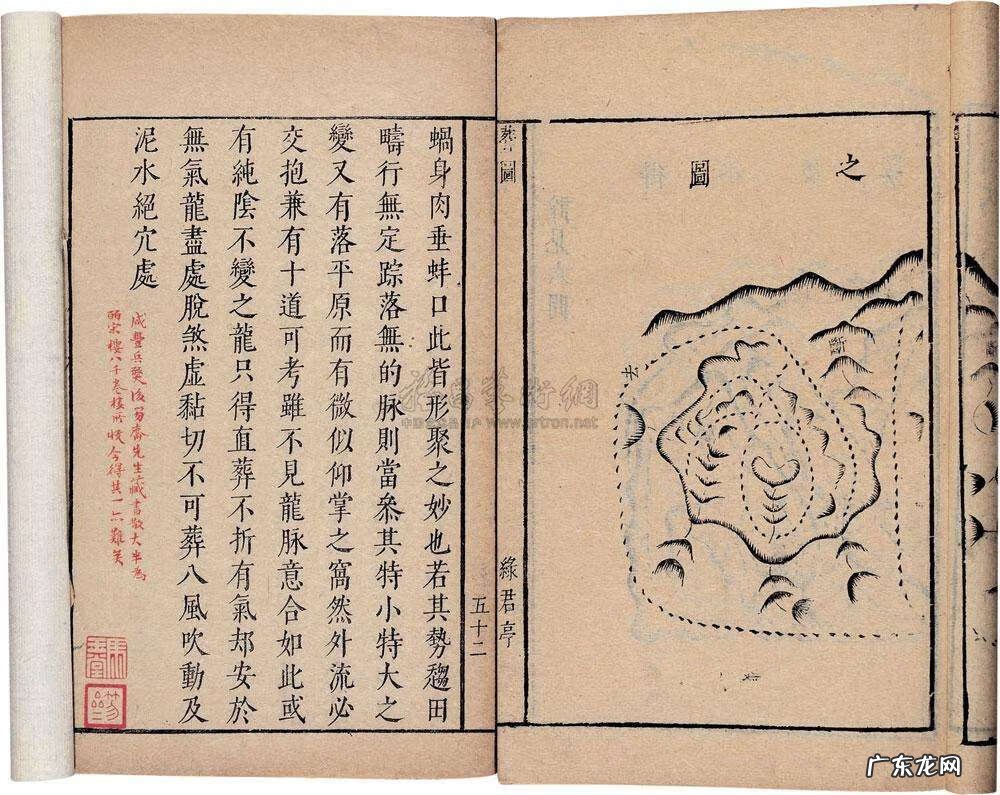 之
圖
斷
去
葬圖
綠君亭
五十二
蝸身肉垂蚌口此皆形聚之妙也若其勢趨田
疇行無定踪落無的脉則當叅其特小特大之
變又有落平原而有微似仰掌之窩然外流必
交抱兼有十道可考雖不見龍脉意合如此或
有純陰不變之龍只得直葬不折有氣却安於
無氣龍盡處脫煞虛黏切不可葬八風吹動及
泥水絕穴處
咸豐兵燹後勞齋先生藏書散大半為
皕宋樓八千卷樓所收今得其一亦難矣
www.artron.net
广东龙网